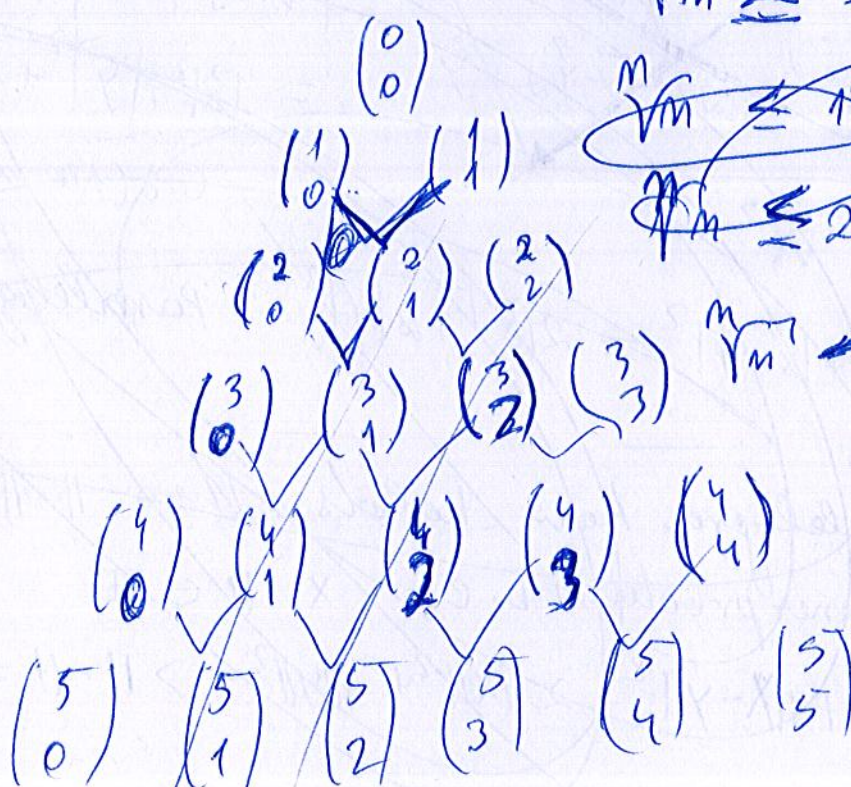 (0 0)
(1 0) (1 1)
(2 0) (2 1) (2 2)
(3 0) (3 1) (3 2) (3 3)
(4 0) (4 1) (4 2) (4 3) (4 4)
(5 0) (5 1) (5 2) (5 3) (5 4) (5 5)
ⁿ√n ≤ 1
ⁿ√n ≤ 2
ⁿ√n